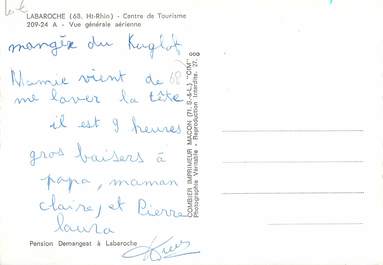 LABAROCHE (68. Ht-Rhin) - Centre de Tourisme
209-24 A - Vue générale aérienne
mangéx du Kuglof
Mamie vient de
me laver la tête
il est 9 heures
gros baisers à
papa, maman
claire, et Pierre
laura
Pension Demangeat à Labaroche
68
COMBIER IMPRIMEUR MACON (71. S.-&-L.) "CIM"
Photographie Véritable - Reproduction Interdite.